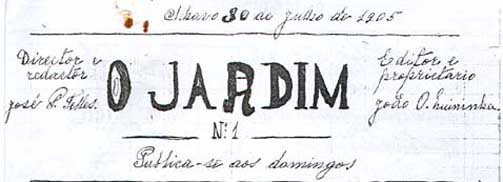 Ilhavo 30 de julho de 1905
Director e
redactor
José P. Telles.
O JARDIM
Editor e
proprietário
João O.
Nº 1
Publica-se aos domingos